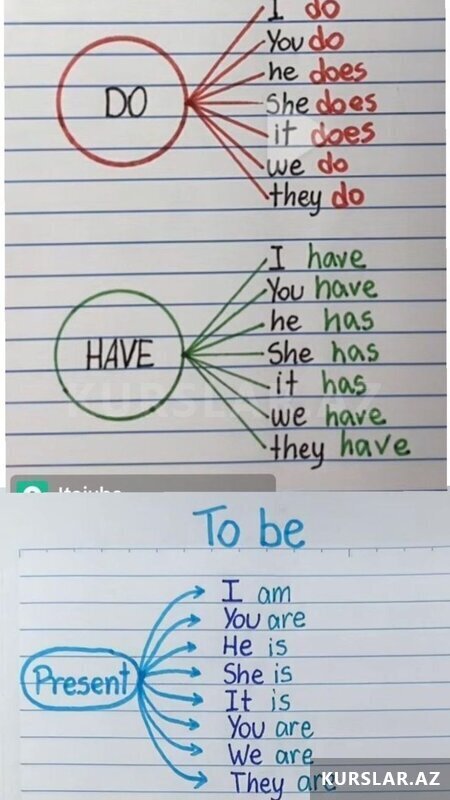 I do
You do
he does
DO
She does
it does
we do
they do
I have
You have
he has
HAVE
She has
it has
KURSLAR.AZ
we have
they have
To be
I am
You are
He is
She is
Present
It is
You are
We are
They are
KURSLAR.AZ